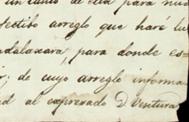 un cuño de seda para nue
fectibo arreglo que haré lu
adalaxara, para donde es
r; de cuyo arreglo informa
ed al expresado D Ventura